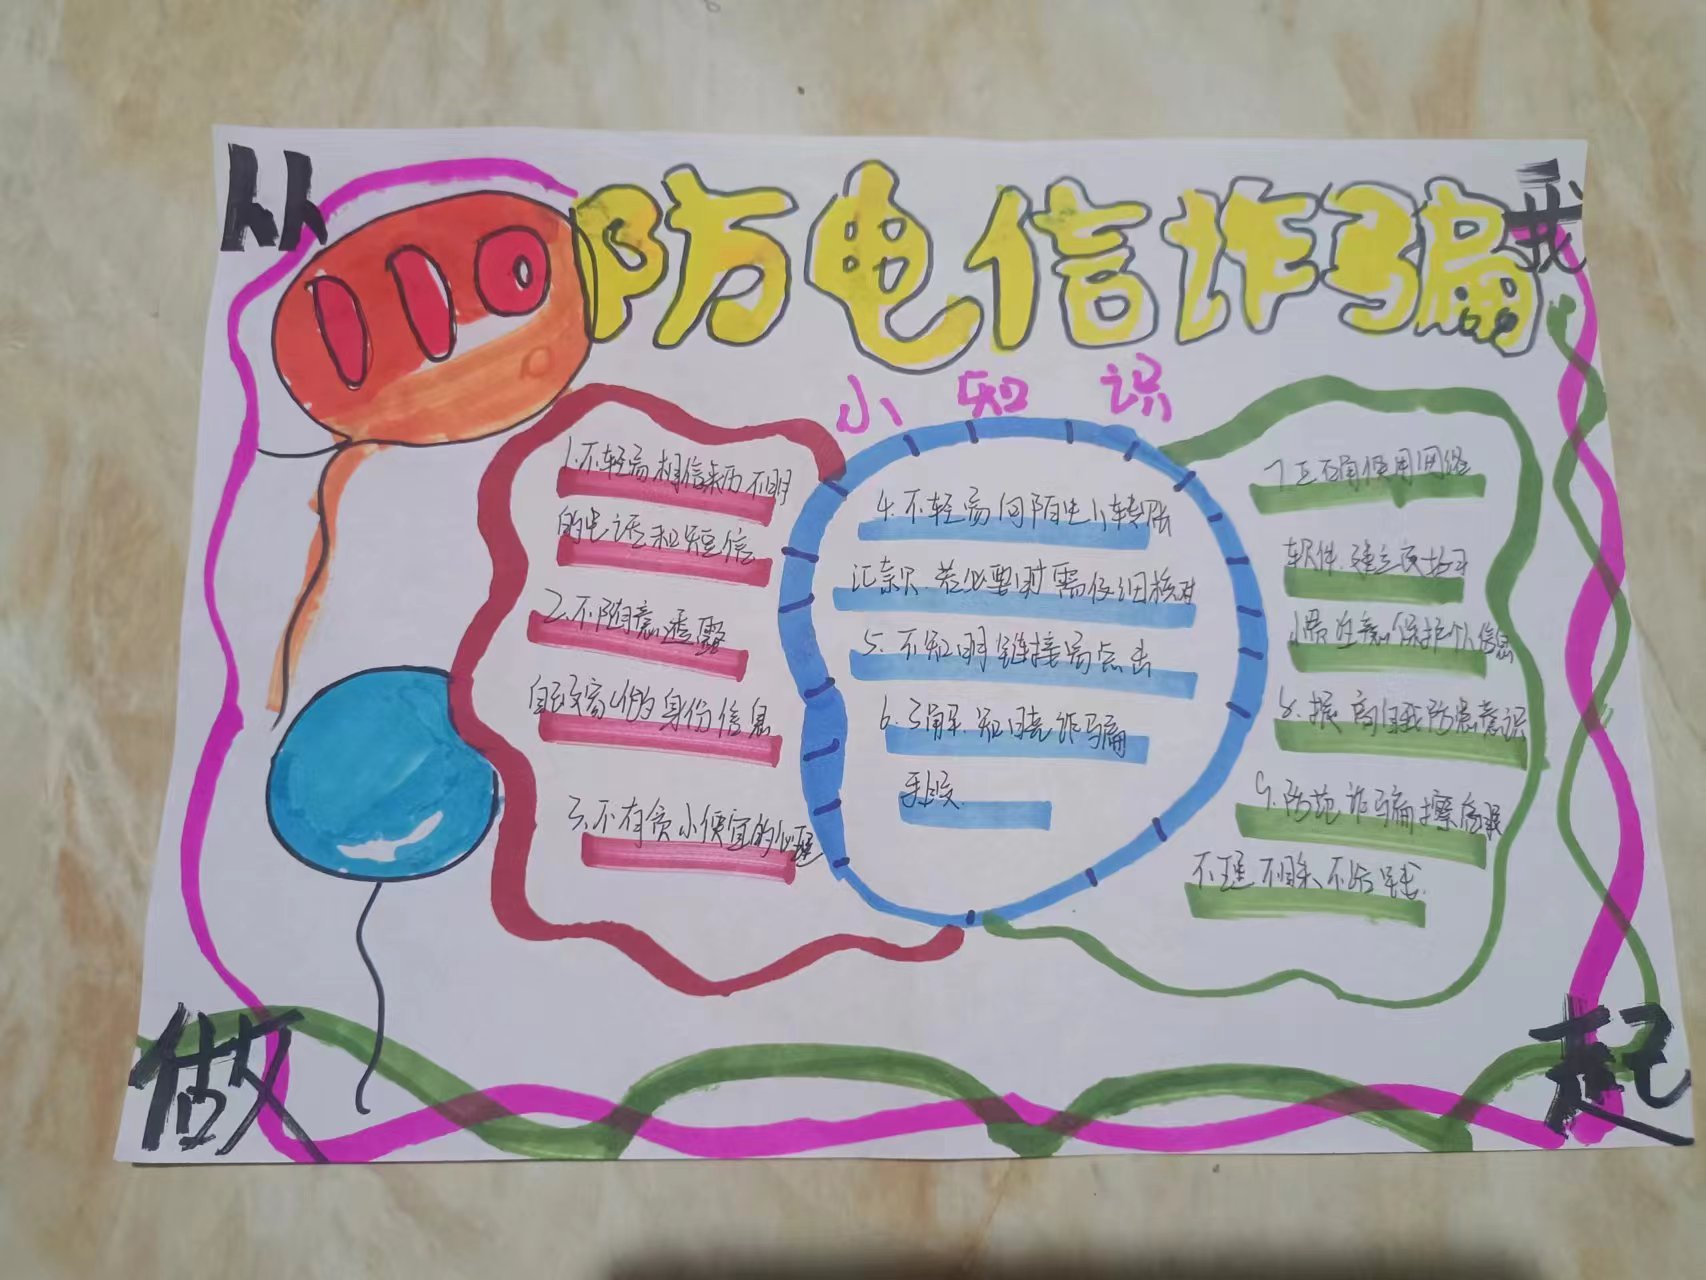 从
我
110
防电信诈骗
小知识
1.不轻易相信来历不明
的电话和短信
2.不随意透露
自己家人的身份信息
3.不有贪小便宜的心理
4.不轻易向陌生人转账
汇款.若必要时需仔细核对
5.不知明链接易点击
6.了解.知晓诈骗
手段.
7正确使用网络
软件.建立
注意保护个人信息
8.提高自我防患意识
9.防范诈骗擦亮眼
不理不睬不给钱.
做
起